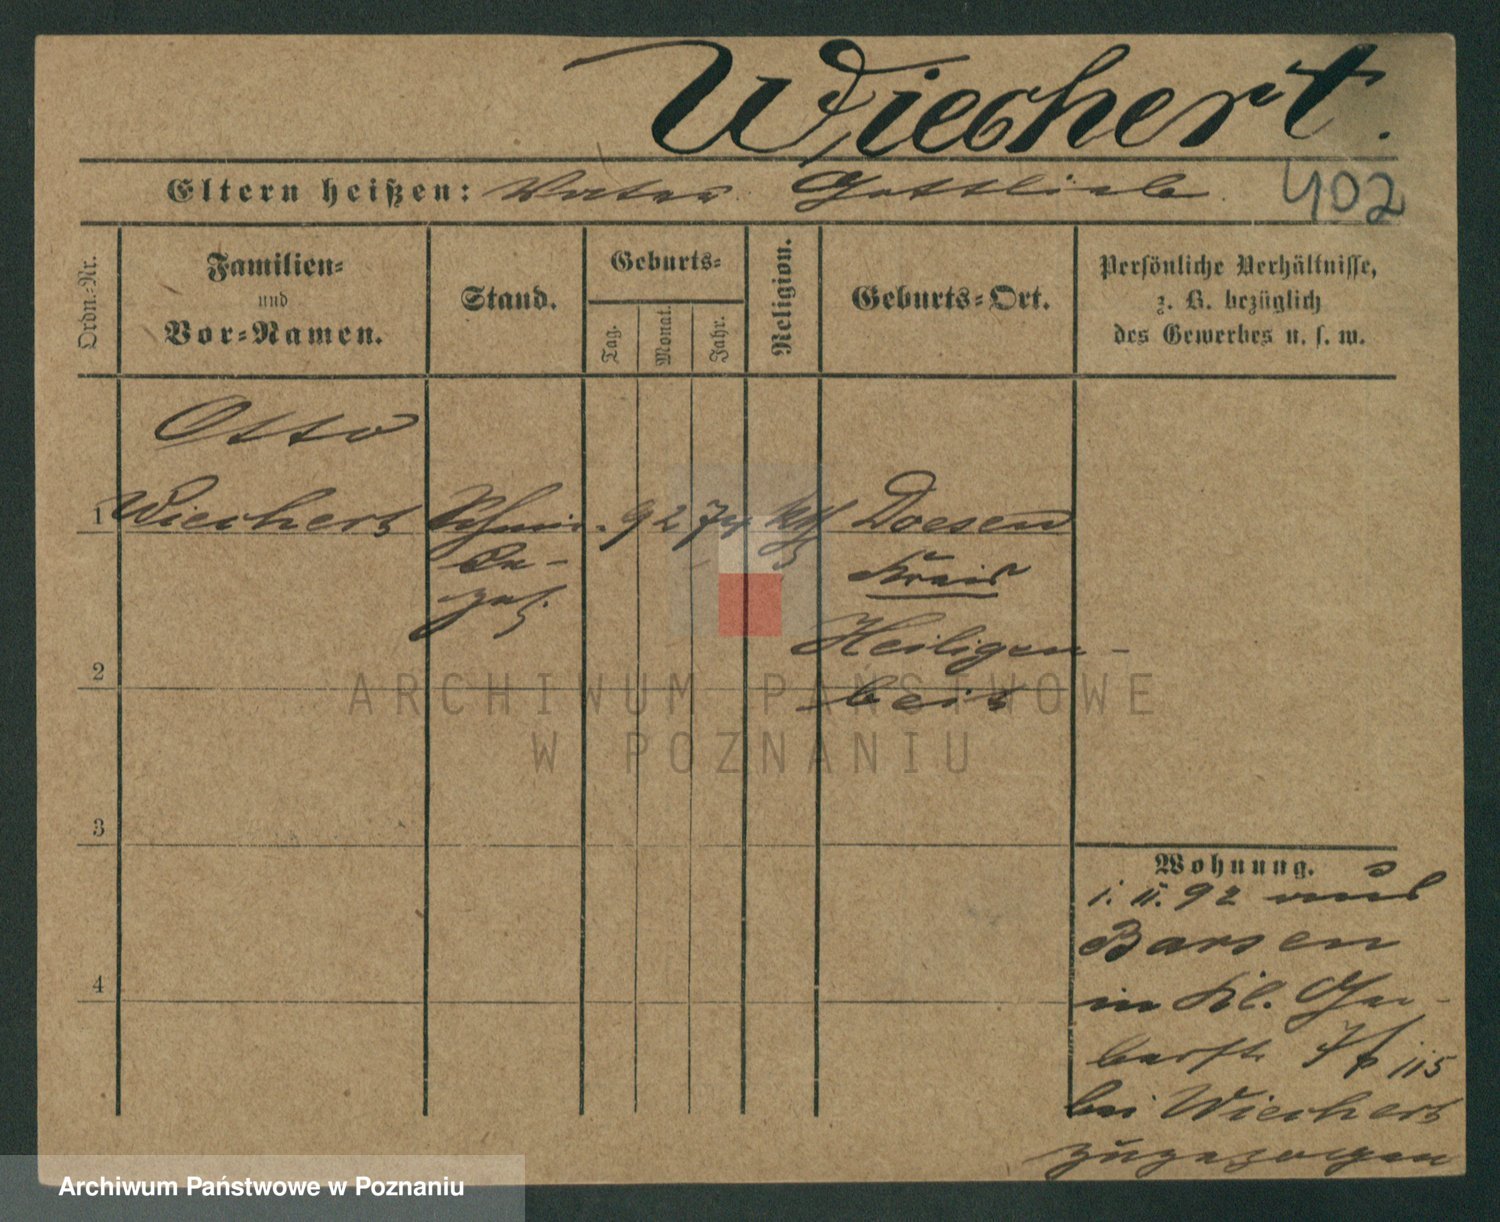 Wiechert.
Eltern heißen: Vater Gottlieb.
402
Ordn.-Nr.
Familien-
und
Vor-Namen.
Stand.
Geburts-
Tag.
Monat.
Jahr.
Religion.
Geburts-Ort.
Persönliche Verhältnisse,
z. B. bezüglich
des Gewerbes u. s. w.
Otto
1 Wiechert Schmie- 9 2 74 Doesen
de-
ges. Kreis
Heiligen-
2 beil
3
4
Wohnung.
1. 11. 92 aus
Barsen
in Kl. Ger-
berstr. 115
bei Wiechert
zugezogen
ARCHIWUM PAŃSTWOWE
W POZNANIU
Archiwum Państwowe w Poznaniu